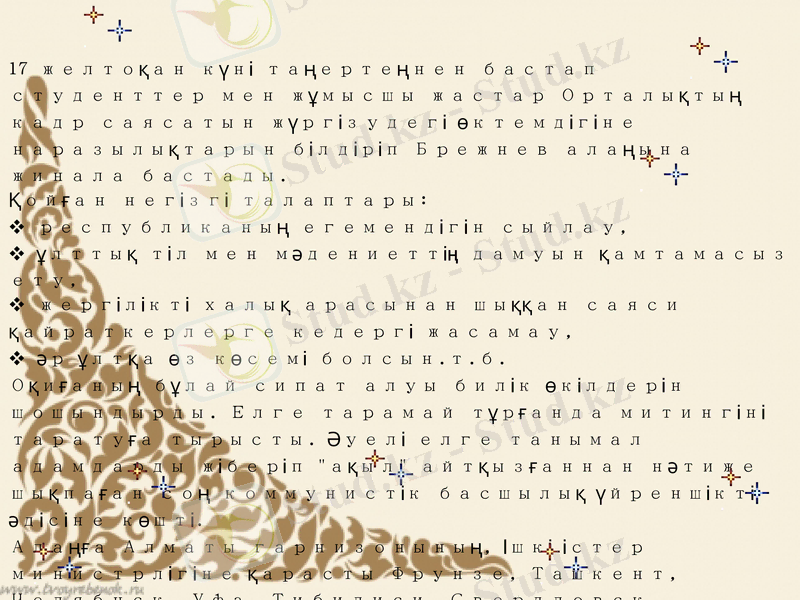 17 желтоқан күні таңертеңнен бастап
студенттер мен жұмысшы жастар Орталықтың
кадр саясатын жүргізудегі өктемдігіне
наразылықтарын білдіріп Брежнев алаңына
жинала бастады.
Қойған негізгі талаптары:
❖ республиканың егемендігін сыйлау,
❖ ұлттық тіл мен мәдениеттің дамуын қамтамасыз
ету,
❖ жергілікті халық арасынан шыққан саяси
қайраткерлерге кедергі жасамау,
❖ әр ұлтқа өз көсемі болсын.т.б.
Оқиғаның бұлай сипат алуы билік өкілдерін
шошындырды. Елге тарамай тұрғанда митингіні
таратуға тырысты. Әуелі елге танымал
адамдарды жіберіп "ақыл" айтқызғаннан нәтиже
шықпаған соң коммунистік басшылық үйреншікті
әдісіне көшті.
Алаңға Алматы гарнизонының, Ішкі істер
министрлігіне қарасты Фрунзе, Ташкент,
Челябинск, Уфа, Тибилиси, Свердловск
Stud.kz - Stud.kz
Stud.kz - Stud.kz
Stud.kz - Stud.kz
www.tvoyrebenok.ru